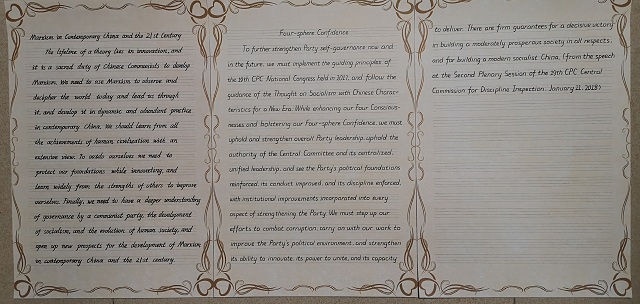 Marxism in Contemporary China and the 21st Century
The lifeline of a theory lies in innovation, and
it is a sacred duty of Chinese Communists to develop
Marxism. We need to use Marxism to observe and
decipher the world today and lead us through
it, and develop it in dynamic and abundant practice
in contemporary China. We should learn from all
the achievements of human civilization with an
extensive view. To outdo ourselves we need to
protect our foundations while innovating, and
learn widely from the strengths of others to improve
ourselves. Finally, we need to have a deeper understanding
of governance by a communist party, the development
of socialism, and the evolution of human society, and
open up new prospects for the development of Marxism
in contemporary China and the 21st century.
Four-sphere Confidence
To further strengthen Party self-governance now and
in the future, we must implement the guiding principles of
the 19th CPC National Congress held in 2017, and follow the
guidance of the Thought on Socialism with Chinese Charac-
teristics for a New Era. While enhancing our Four Conscious-
nesses and bolstering our Four-sphere Confidence, we must
uphold and strengthen overall Party leadership, uphold the
authority of the Central Committee and its centralized,
unified leadership, and see the Party's political foundations
reinforced, its conduct improved, and its discipline enforced,
with institutional improvements incorporated into every
aspect of strengthening the Party. We must step up our
efforts to combat corruption, carry on with our work to
improve the Party's political environment, and strengthen
its ability to innovate, its power to unite, and its capacity
to deliver. There are firm guarantees for a decisive victory
in building a moderately prosperous society in all respects,
and for building a modern socialist China. (from the speech
at the Second Plenary Session of the 19th CPC Central
Commission for Discipline Inspection, January 11, 2018)